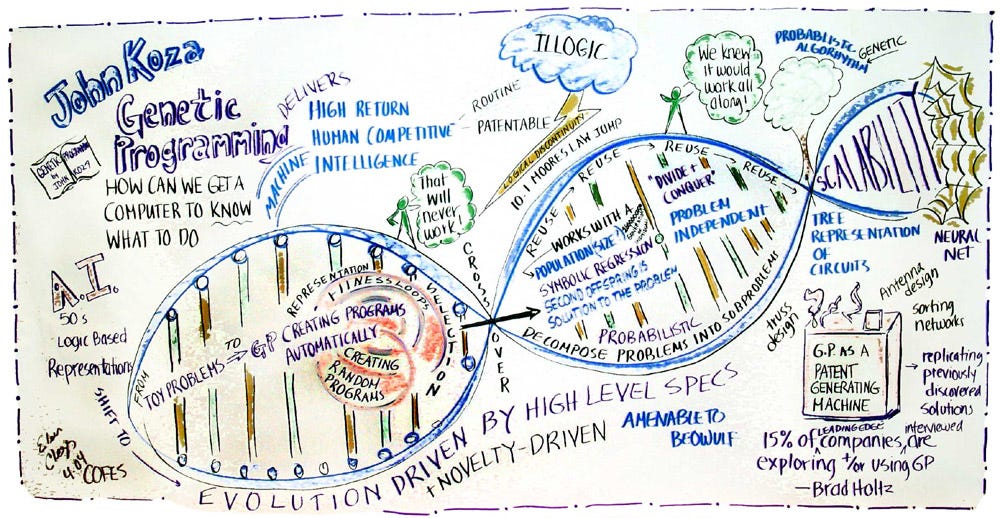 John Koza
Genetic
Programming
GENETIC PROGRAMMING
JOHN KOZA
HOW CAN WE GET A
COMPUTER TO KNOW
WHAT TO DO
DELIVERS
HIGH RETURN
HUMAN COMPETITIVE
MACHINE INTELLIGENCE
ROUTINE
PATENTABLE
ILLOGIC
LOGICAL DISCONTINUITY
10-1 MOORES LAW JUMP
We knew
it would
work all
along!
PROBABLISTIC
ALGORHYTHM
GENETIC
That
will
never
work
A.I.
50's
Logic Based
Representations
SHIFT TO
FROM
TOY PROBLEMS TO GP CREATING PROGRAMS
AUTOMATICALLY
REPRESENTATION
FITNESS LOOP
SELECTION
CREATING
RANDOM
PROGRAMS
CROSS OVER
REUSE → REUSE → REUSE → REUSE →
WORKS WITH A
POPULATION (SIZE?)
SYMBOLIC REGRESSION
SECOND OFFSPRING IS
SOLUTION TO THE PROBLEM
"DIVIDE +
CONQUER"
PROBLEM
INDEPENDENT
PROBABILISTIC
DECOMPOSE PROBLEMS INTO SUBPROBLEMS
SCALABILITY
NEURAL
NET
TREE
REPRESENTATION
OF
CIRCUITS
truss
design
Antenna
design
sorting
networks
G.P. AS A
PATENT
GENERATING
MACHINE
→ replicating
previously
discovered
solutions
EVOLUTION DRIVEN BY HIGH LEVEL SPECS
+ NOVELTY-DRIVEN
AMENABLE TO
BEOWULF
15% of LEADING EDGE companies interviewed are
exploring +/or using GP
—Brad Holtz
4.04
COFES